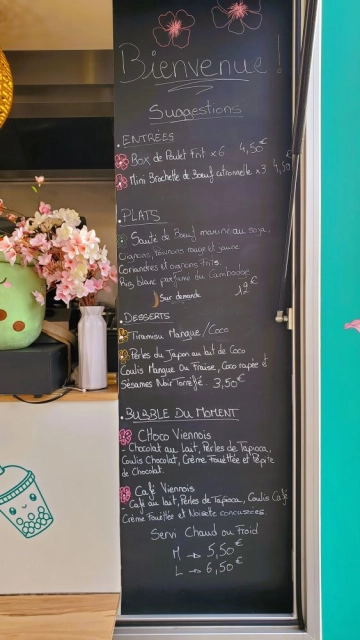 Bienvenue !
Suggestions
ENTRÉES
Box de Poulet Frit x6 4,50€
Mini Brochette de Bœuf citronnelle x3 4,50€
PLATS
Sauté de Bœuf mariné au soja,
Oignons, Poivrons rouge et jaune
Coriandres et oignons frits.
Riz blanc parfumé du Cambodge
Sur demande 12€
DESSERTS
Tiramisu Mangue/Coco
Perles du Japon au lait de Coco
Coulis Mangue Ou Fraise, Coco rapée et
Sésames Noir Torréfié. 3,50€
BUBBLE DU MOMENT
CHoco Viennois
- Chocolat au lait, Perles de Tapioca,
Coulis Chocolat, Crème Fouettée et Pépite
de Chocolat.
Café Viennois
- Café au lait, Perles de Tapioca, Coulis Café
Crème Fouettée et Noisette concassées.
Servi Chaud ou Froid
M → 5,50€
L → 6,50€